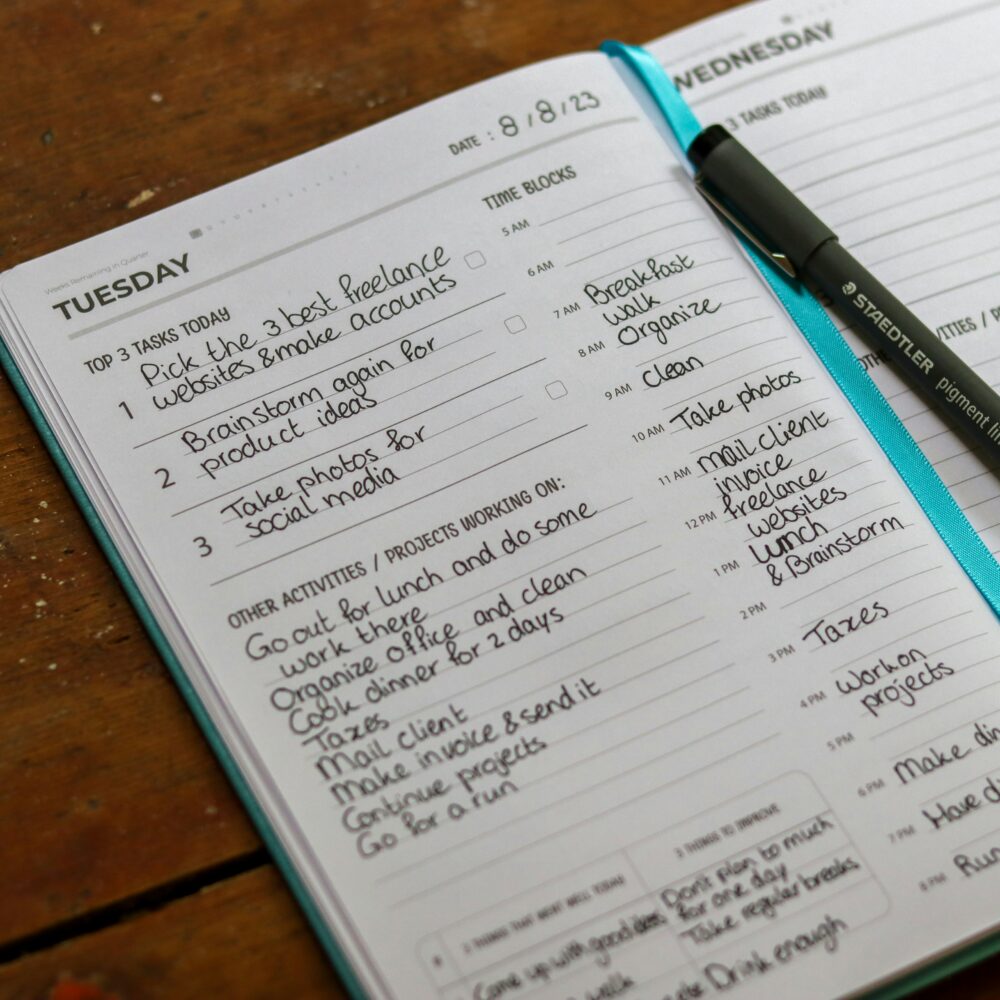 Weeks Remaining in Quarter
TUESDAY
DATE : 8/8/23
TOP 3 TASKS TODAY
1 Pick the 3 best freelance
websites & make accounts
2 Brainstorm again for
product ideas
3 Take photos for
social media
OTHER ACTIVITIES / PROJECTS WORKING ON:
Go out for lunch and do some
work there
Organize office and clean
Cook dinner for 2 days
Taxes
Mail client
Make invoice & send it
Continue projects
Go for a run
TIME BLOCKS
5 AM
6 AM
7 AM Breakfast
walk
8 AM Organize
9 AM Clean
10 AM Take photos
11 AM mail client
invoice
12 PM freelance
websites
1 PM lunch
& Brainstorm
2 PM
3 PM Taxes
4 PM Work on
projects
5 PM
6 PM Make din
7 PM Have di
8 PM Run
3 THINGS THAT WENT WELL TODAY
Came up with good ideas
walk
3 THINGS TO IMPROVE
Don't plan to much
for one day
Take regular breaks
Drink enough
WEDNESDAY
3 TASKS TODAY
OTH
VITIES / P
STAEDTLER
pigment li